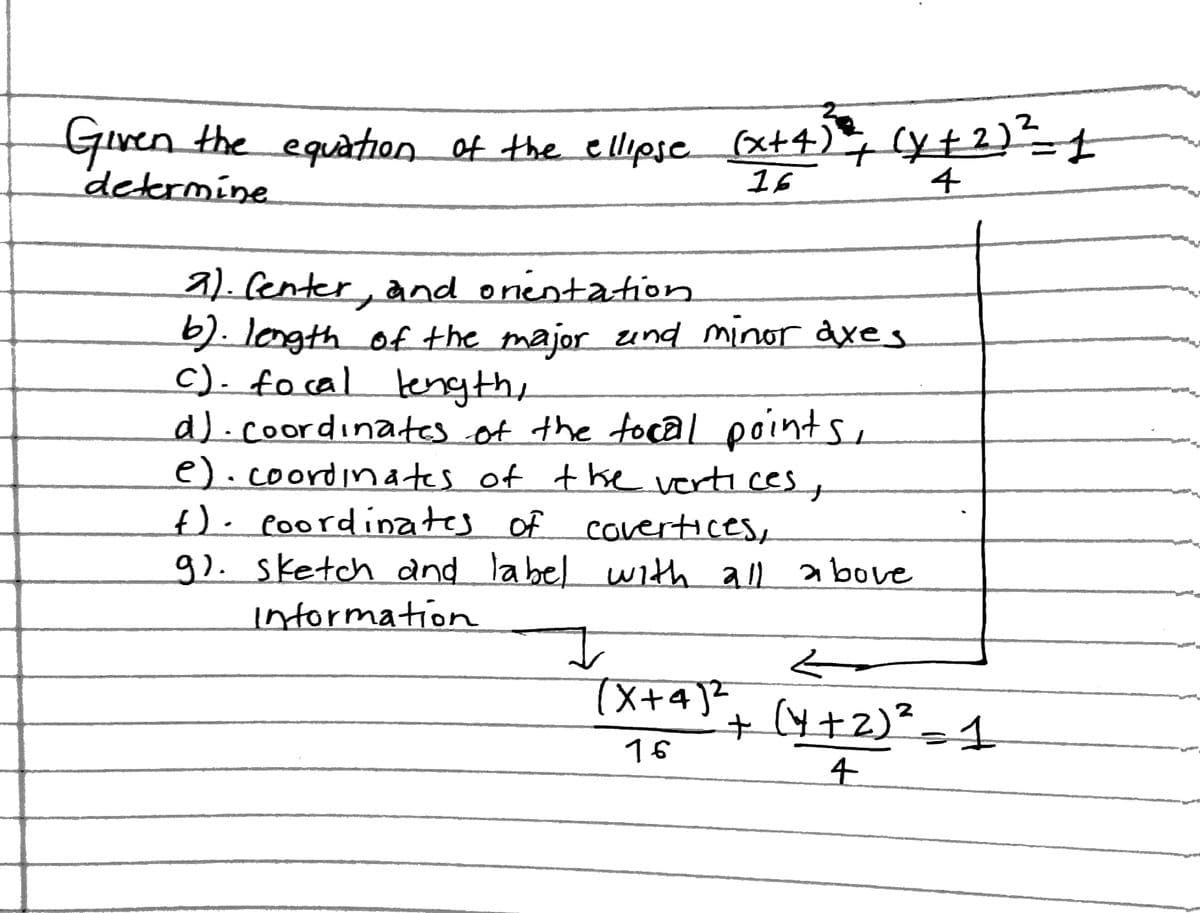 Given the equation of the ellipse (x+4)²/16 + (y+2)²/4 = 1
determine
a). Center, and orientation
b). length of the major and minor axes
c). focal length,
d). coordinates of the focal points,
e). coordinates of the vertices,
f). coordinates of covertices,
g). sketch and label with all above
information
(x+4)²/16 + (y+2)²/4 = 1